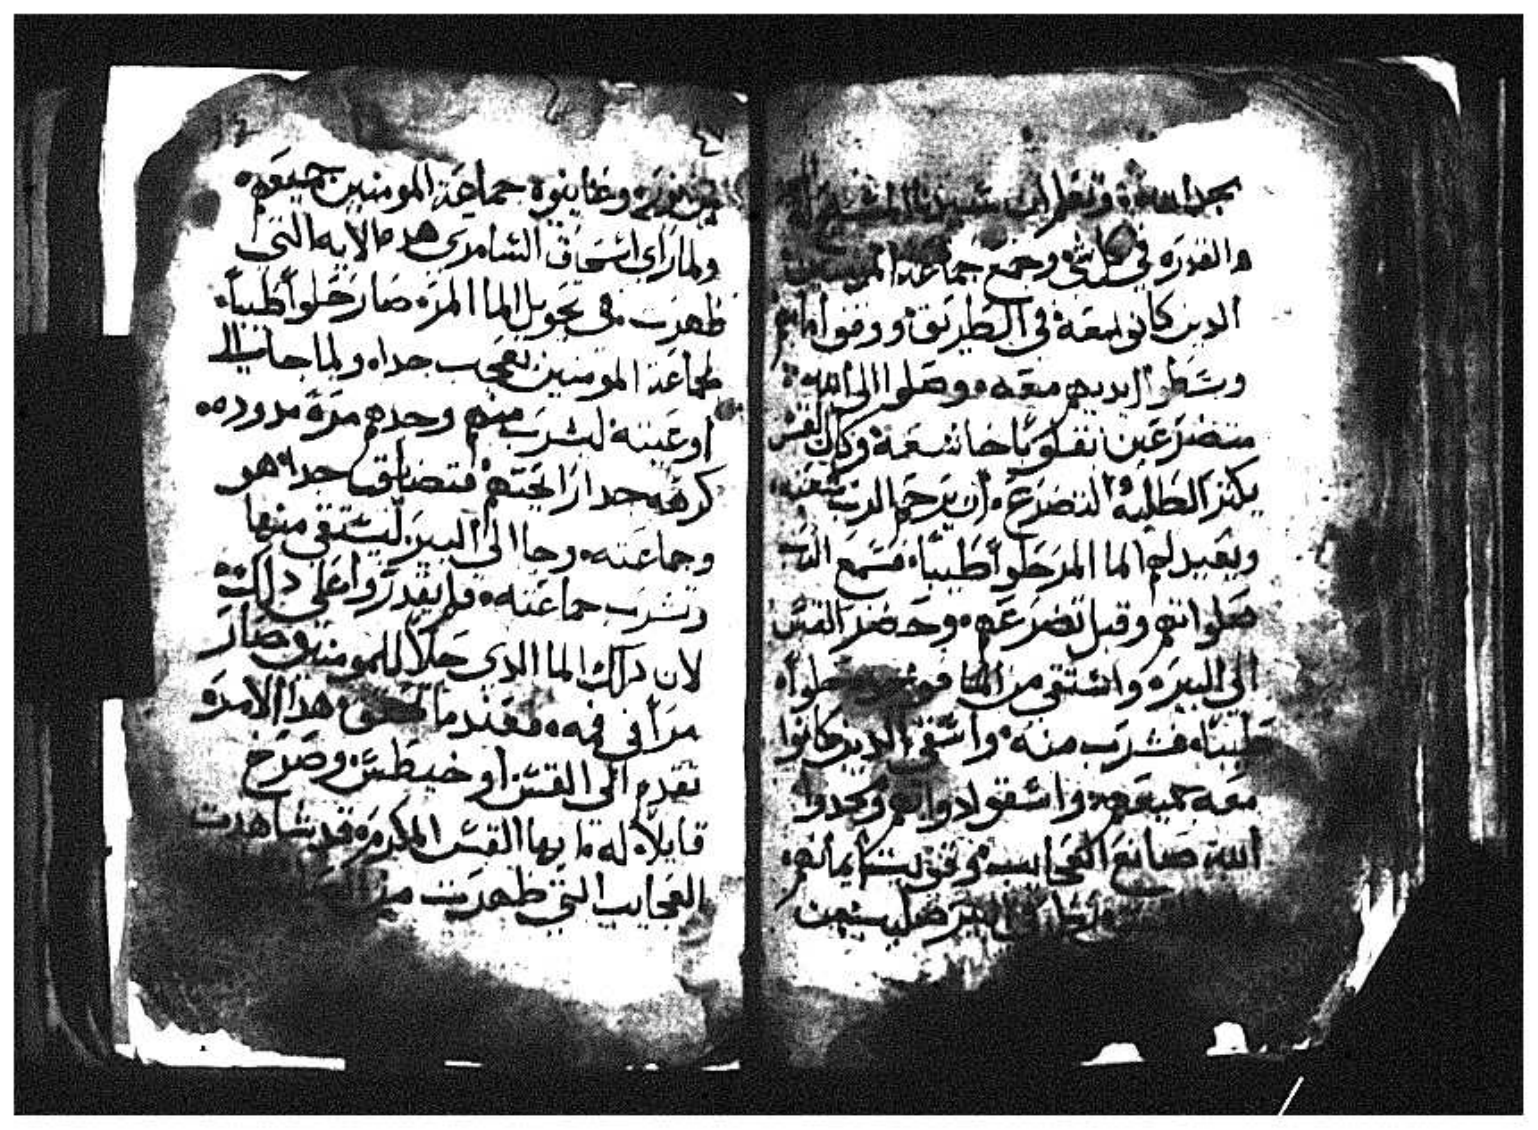 بمجد الله وتنظر الى سيدنا المسيح
والقدره في كل شي وجمع جماعة المومنين
الدين كانوا معه في الطريق ووقفوا امامهم
وبسطوا ايديهم معه وصلوا الى الله
متضرعين بقلوبًا خاشعة وكان القس
يكتر الطلبه والتضرع ان يرحم الرب شعبه
ويعيد لهم الما المر حلواً طيبًا فسمع الرب
صلواتهم وقبل تضرعهم وحضر القس
الى البير واستقى من الما فوجده حلواً
طيبًا فشرب منه واستقى الدين كانوا
معه جميعهم واسقوا دوابهم ومجدوا
الله صانع العجايب وقويت ايمانهم
في البير صليب

من نوره وعاينوه جماعة المومنين جميعهم
ولما راى اسحاق السامرى هده الايه التي
ظهرت في تحويل الما المر صار حلواً طيباً
لجماعة المومنين تعجب جدا ولما جا الى
اوعيته ليشرب منهم وجدهم مرة مدوده
كرهه جدا رايحتهم فتضايق جدا هو
وجماعته وجا الى البير ليستقى منها
وتشرب جماعته فلم يقدروا على دلك
لان داك الما الدى حلا للمومنين وصار
مراً في فمه فعندما تحقق هدا الامر
تقدم الى القس اوخيطس وصرخ
قايلاً له يا ايها القس المكرم قد شاهدت
العجايب التي ظهرت من